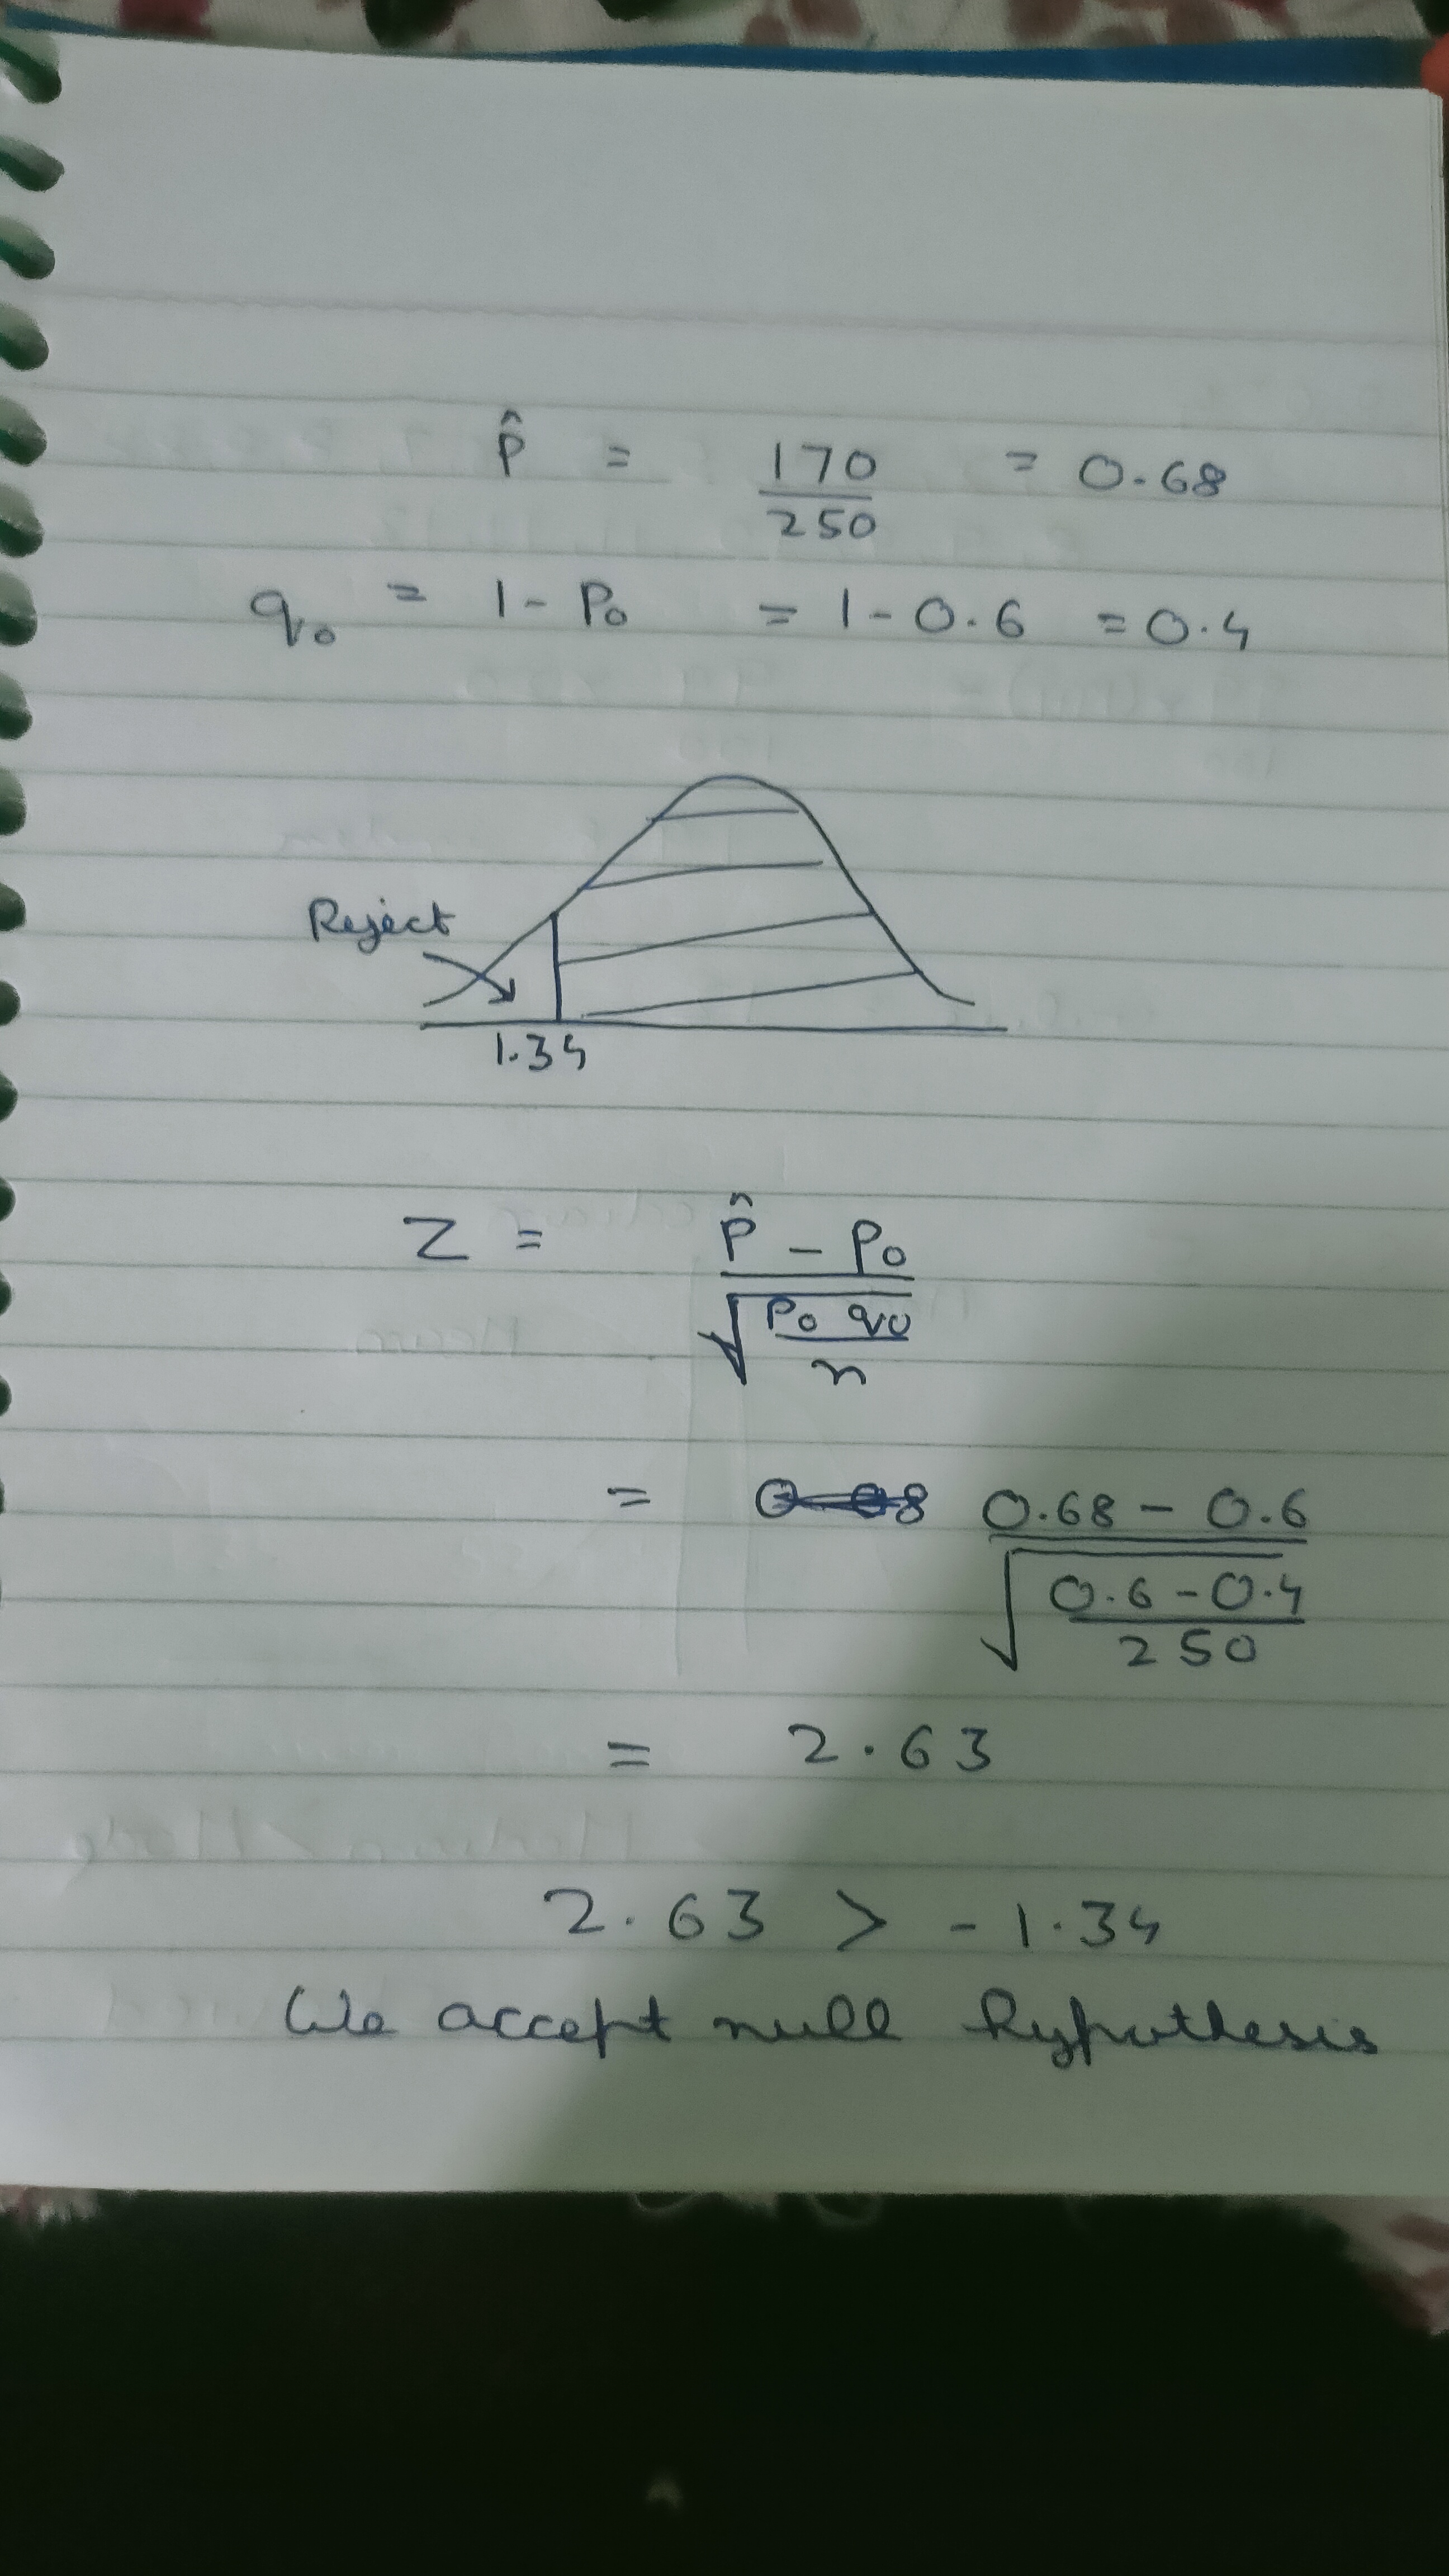 p̂ = 170/250 = 0.68
q₀ = 1 - P₀ = 1 - 0.6 = 0.4
Reject
1.34
Z = (p̂ - P₀) / √(P₀ q₀ / n)
= (0.68 - 0.6) / √((0.6 - 0.4) / 250)
= 2.63
2.63 > -1.34
We accept null hypothesis